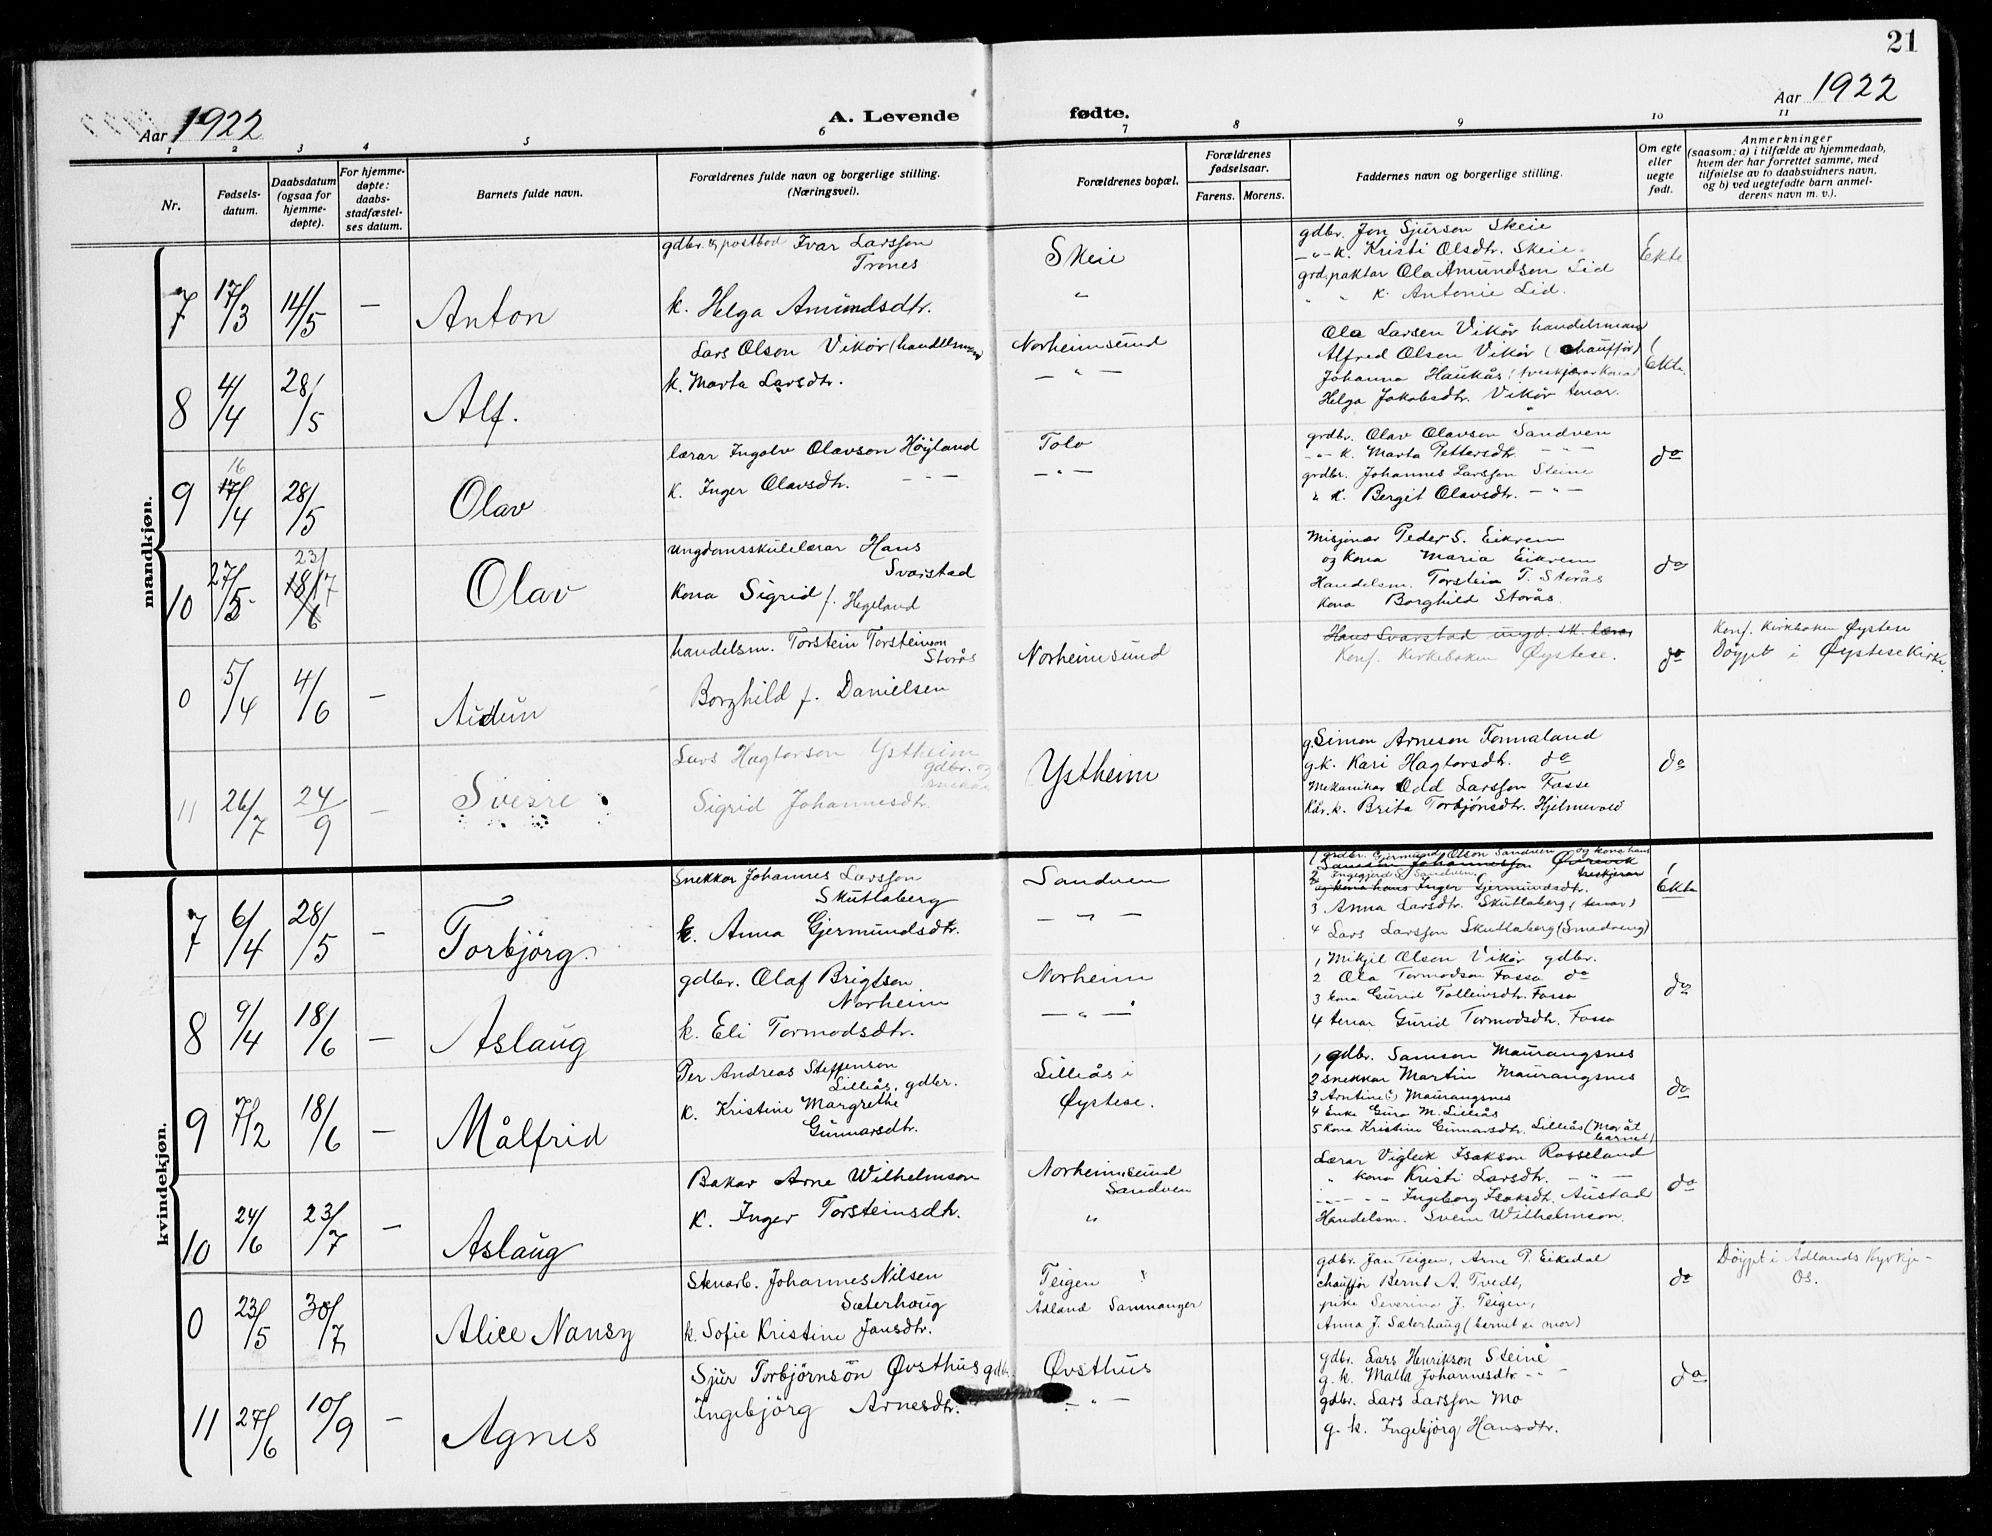 21
Aar 1922
A. Levende fødte.
Aar 1922
1 2 3 4 5 6 7 8 9 10 11
Nr.
Fødsels-
datum.
Daabsdatum
(ogsaa for
hjemme-
døpte).
For hjemme-
døpte:
daabs-
stadfæstel-
ses datum.
Barnets fulde navn.
Forældrenes fulde navn og borgerlige stilling.
(Næringsvei).
Forældrenes bopæl.
Forældrenes
fødselsaar.
Farens. Morens.
Faddernes navn og borgerlige stilling.
Om egte
eller
uegte
født.
Anmerkninger
(saasom: a) i tilfælde av hjemmedaab,
hvem der har forrettet samme, med
tilføielse av to daabsvidners navn,
og b) ved uegtefødte barn anmel-
derens navn m. v.).
mandkjøn.
7 17/3 14/5 — Anton
gdbr. og postbod Ivar Larsson
Trones
k. Helga Amundsdtr.
Skeie
"
gdbr. Jon Sjurson Skeie
-"- k. Kristi Olsdtr. Skeie
grd.paktar Ola Amundson Lid
" " k. Antonie Lid.
Ekte
8 4/4 28/5 Alf.
Lars Olson Vikør (handelsmann)
k. Marta Larsdtr.
Norheimsund
— " —
Ola Larsen Vikør handelsmann
Alfred Olson Vikør (chauffør)
Johanna Haukås
Helga Jakobsdtr. Vikør tenar.
Ekte.
9 16 17/4 28/5 Olav
lærar Ingolv Olavson Høyland
k. Inger Olavsdtr. — " —
Tolo
— " —
grdbr. Olav Olavson Sandven
-"- k. Marta Pettersdtr. — " —
grdbr. Johannes Larsson Steine
" k. Bergit Olavsdtr. — " —
do
10 27/5 23/7 18/6 Olav
ungdomsskulelærar Hans
Svarstad
kona Sigrid f. Hegeland
Misjonær Peder S. Eikrem
og kona Maria Eikrem
Handelsm. Torstein T. Storås
kona Borghild Storås.
do
0 5/4 4/6 — Audun
handelsm. Torstein Torsteinson
Storås
Borghild f. Danielsen
Norheimsund
Hans Svarstad ungd. sk. lærar
Konf. Kirkeboken Øystese.
do
Konf. Kirkeboken Øystese
Døypt i Øystese Kirke.
11 26/7 24/9 — Sverre
Lars Hagtorson Ystheim
gdbr. og
snekkar
Sigrid Johannesdtr.
Ystheim
g. Simon Arneson Fonnaland
g.k. Kari Hagtorsdtr. do
Mekanikar Odd Larsson Fosse
k. Brita Torbjønsdtr. Hjelmevold
do
kvindekjøn.
7 6/4 28/5 — Torbjörg.
Snekkar Johannes Larsson
Skutlaberg
k. Anna Gjermundsdtr.
Sandven
— " —
1 grdbr. Gjermund Olson Sandven og kona hans
Samson Johannesson Øvrevik
2 Ingegjerd S. Sandven. treskjerar
og kona hans Inger Gjermundsdtr.
3 Anna Larsdtr. Skutlaberg (tenar)
4 Lars Larsson Skutlaberg (Smedsveng)
Ekte
8 9/4 18/6 — Aslaug
gdbr. Olaf Brigtson
Norheim
k. Eli Tormodsdtr.
Norheim
— " —
1 Mikjel Olson Vikør gdbr.
2 Ola Tormodson Fosso do
3 kona Gurid Tolleivsdtr. Fosso
4 tenar Gurid Tormodsdtr. Fosso
do
9 7/2 18/6 — Målfrid
Per Andreas Steffenson
Lilleås, gdbr.
k. Kristine Margrethe
Gunnarsdtr.
Lilleås i
Øystese.
1 gdbr. Samson Maurangsnes
2 snekkar Martin Maurangsnes
3 Arntine Maurangsnes
4 Enke Guro M. Lilleås
5 kona Kristine Gunnarsdtr. Lilleås (Mor åt
barnet)
do
10 24/6 23/7 — Aslaug
Bakar Arne Wilhelmson
k. Inger Torsteinsdtr.
Norheimsund
Sandven
"
Lærar Vigleik Isakson Rosseland
" kona Kristi Larsdtr. — " —
Ingeborg Isaksdtr. Austad
Handelsm. Svein Wilhelmson.
do
0 23/5 30/7 Alice Nansy
Stenarb. Johannes Nilsen
Sæterhaug
k. Sofie Kristine Jansdtr.
Teigen
Ådland Samnanger
gdbr. Jan Teigen, Arne P. Eikedal
chauffør Bernt A. Tvedt,
pike Severina J. Teigen,
Anna J. Sæterhaug (barnet si mor)
do
Døypt i Ådlands Kyrkje—
Os.
11 27/6 10/9 — Agnes
Sjur Torbjørnson Øvsthus gdbr.
Ingebjörg Arnesdtr.
Øvsthus
— " —
gdbr. Lars Henrikson Steine
g.k. Malla Johannesdtr -"-
gdbr. Lars Larsson Mo
g. k. Ingebjörg Hansdtr.
do